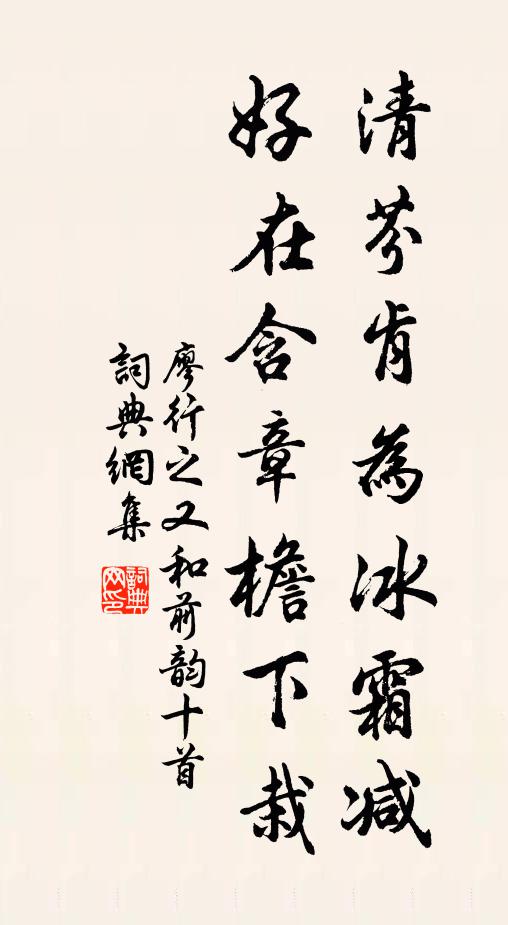 清芬肯為冰霜减
好在含章檐下栽
廖行之又和前韵十首
詞典網集
詞典網印